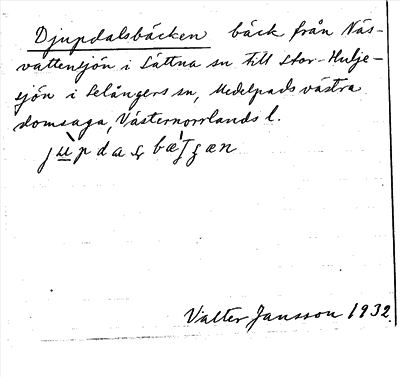 Djupdalsbäcken bäck från Näs-
vattensjön i Sättna sn till Stor-Hulje-
sjön i Selångers sn, Medelpads västra
domsaga, Västernorrlands l.
Valter Jansson 1932